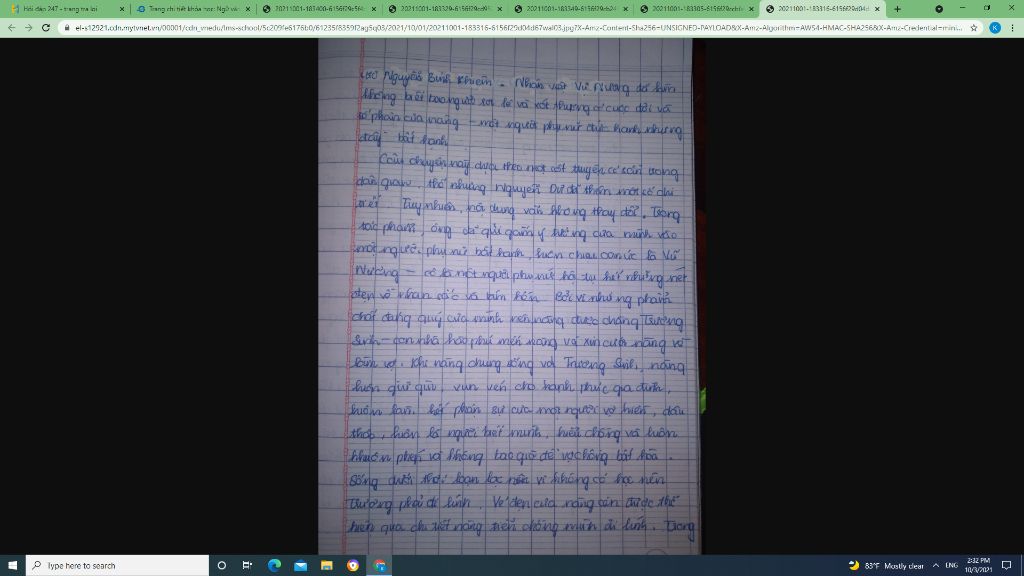 Hỏi đáp 247 - trang tra loi
Trang chi tiết khóa học: Ngữ vă
20211001-183400-6156f29e5f4
20211001-183329-6156f29cd9f
20211001-183349-6156f29cb24
20211001-183305-6156f29ccb
20211001-183316-6156f29d04d
el-s12921.cdn.mytvnet.vn/00001/cdn_vnedu/lms-school/5c209fe6176b0/61235f8359f2ag5q03/2021/10/01/20211001-183316-6156f29d04d67wal03.jpg?X-Amz-Content-Sha256=UNSIGNED-PAYLOAD&X-Amz-Algorithm=AWS4-HMAC-SHA256&X-Amz-Credential=mini...
Nguyễn Bỉnh Khiêm. Nhân vật Vũ Nương đã làm
không biết bao người xót thương cuộc đời và
số phận của nàng - một người phụ nữ đức hạnh nhưng
đầy bất hạnh
Câu chuyện này dựa theo một cốt truyện có sẵn trong
dân gian, thế nhưng Nguyễn Dữ đã thêm một số chi
tiết. Tuy nhiên, nội dung vẫn không thay đổi. Trong
tác phẩm, ông đã gửi gắm ý tưởng của mình vào
một người phụ nữ bất hạnh, luôn chịu oan ức là Vũ
Nương - cô là một người phụ nữ hội tụ hết những nét
đẹp về nhan sắc và tâm hồn. Bởi vì những phẩm
chất đáng quý của mình nên nàng được chàng Trương
Sinh - con nhà hào phú mến nàng và xin cưới nàng về
làm vợ. Khi nàng chung sống với Trương Sinh, nàng
luôn giữ gìn, vun vén cho hạnh phúc gia đình,
luôn làm hết phận sự của một người vợ hiền, dâu
thảo, luôn là người biết mình, hiểu chồng và luôn
khuôn phép và không bao giờ để vợ chồng bất hòa.
Sống dưới thời loạn lạc nên vì không có học nên
Trương phải đi lính. Vẻ đẹp của nàng còn được thể
hiện qua chi tiết nàng tiễn chồng mình đi lính. Trong
Type here to search
83°F Mostly clear
ENG
2:32 PM
10/3/2021